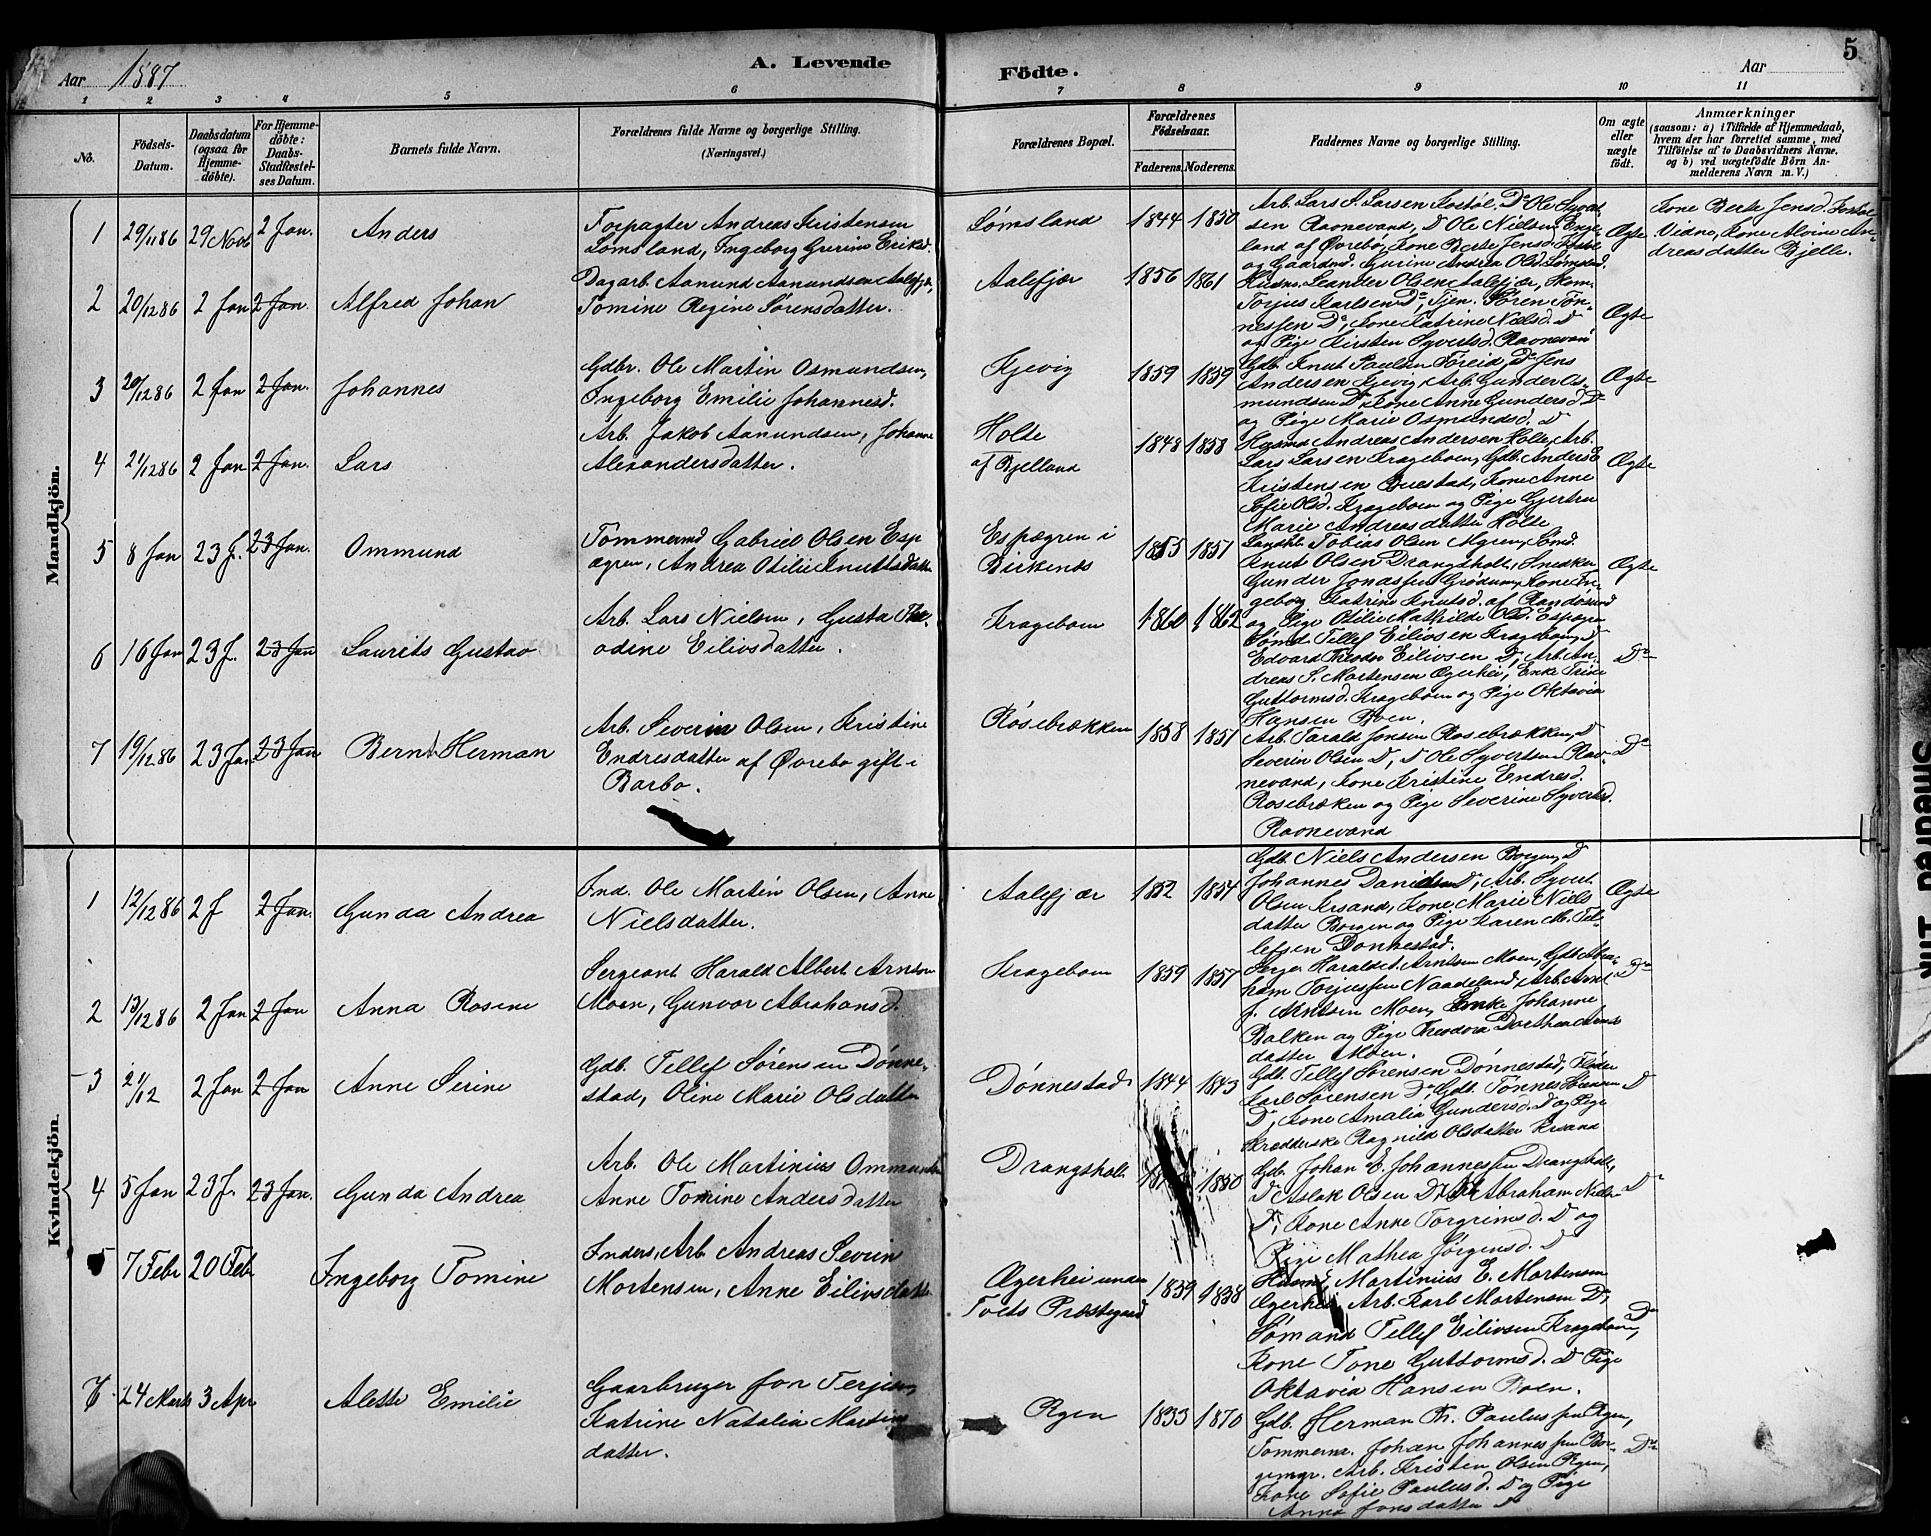 Aar 1887
A. Levende
Födte.
Aar
5
1 2 3 4 5 6 7 8 9 10 11
No.
Födsels-
Datum.
Daabsdatum
(ogsaa for
Hjemme-
döbte).
For Hjemme-
döbte:
Daabs-
Stadfæstel-
ses Datum.
Barnets fulde Navn.
Forældrenes fulde Navne og borgerlige Stilling.
(Næringsvei.)
Forældrenes Bopæl.
Forældrenes
Födselsaar.
Faderens. Moderens.
Faddernes Navne og borgerlige Stilling.
Om ægte
eller
uægte
födt.
Anmærkninger
(saasom: a) i Tilfælde af Hjemmedaab,
hvem der har forrettet samme, med
Tilföielse af to Daabsvidners Navne.
og b) ved uægtefödte Börn An-
melderens Navn m. V.)
Mandkjön.
1 29/11 86 29 Novb 2 Jan. Anders
Forpagter Andreas Kristensen
Lømsland, Ingeborg Gurine Eriksd.
Lømsland 1844 1850
Arb. Lars S. Larsen Fostøl, Do Ole Syvert-
sen Ravnevand, D Ole Nielsen Enge-
land af Øvrebø, Kone Berte Jensd. Fostøl
og Gaardmd. Gurine Andrea Olsd. Lømsld.
Ægte
Kone Berte Jensd. Fostøl
Vidne, Kone Alvine An-
dreasdatter Bjelle.
2 20/12 86 2 Jan 2 Jan Alfred Johan
Dagarb. Aanund Aanundsen Aalefjær,
Tomine Regine Sørensdatter.
Aalefjær 1856 1861
Husm. Leander Olsen Aalefjær,
Torjus Karlsen Do, Tjen. Søren Tøn-
nessen Do, Kone Katrine Nielsd. D
og Pige Kirsten Syvertsd. Ravnevand
Ægte
3 20/12 86 2 Jan 2 Jan. Johannes
Gdbr. Ole Martin Osmundsen,
Ingeborg Emilie Johannesd.
Kjevig 1859 1859
Gdb. Knut Paulsen Føreid, Do Jens
Andersen Kjevig, Arb. Gunder Os-
mundsen D, Kone Anne Gundersd. D
og Pige Marie Osmundsd. D
Ægte
4 21/12 86 2 Jan 2 Jan. Lars
Arb. Jakob Aanundsen, Johanne
Alexandersdatter.
Holte
af Bjelland
1848 1858
Husmd Andreas Andersen Holte, Arb.
Lars Larsen Krageboen, Gdb. Anders E
Kristensen Buestad, Kone Anne
Sofie Olsd. Krageboen og Pige Gjertru
Marie Andreasdatter Holte
Ægte
5 8 Jan 23 J. 23 Jan. Ommund
Tømmermd Gabriel Olsen Esp
ægren, Andrea Otilie Knutsdatter
Espægren i
Birkenæs
1855 1851
Tobias Olsen Ægren,
Knut Olsen Drangsholt, Snedker
Gunder Jonassen Grødum, Kone In-
geborg Katrine Knutsd. af Randøsund
og Pige Otilie Mathilde Olsd. Espægren
Ægte
6 16 Jan 23 J. 23 Jan Laurits Gustav
Arb. Lars Nielsen, Gusta The-
odine Eilivsdatter.
Krageboen 1860 1862
Sømd. Tellef Eilivsen Krageboen, D
Edvard Theodor Eilivsen D, Arb. An-
dreas S. Mortensen Ægerhei, Enke Trine
Guttormsd. Krageboen og Pige Oktavia
Hansen Boen.
Do
7 19/12 86 23 Jan 23 Jan Bernt Herman
Arb. Severin Olsen, Kristine
Endresdatter af Øvrebø gift i
Barbo.
Rosebrækken 1858 1851
Arb. Tarald Jonsen Rosebrækken, D
Severin Olsen D, D Ole Syvertsen Rav-
nevand, Kone Kristine Endresd.
Rosebræken og Pige Severine Syvertsd.
Ravnevand
Do
Kvindekjön.
1 12/12 86 2 J 2 Jan. Gunda Andrea
Ind. Ole Martin Olsen, Anne
Nielsdatter.
Aalefjær 1852 1854
Gdb. Niels Andersen Borgen, D
Johannes Danielsen D, Arb. Syvert
Olsen Krsand, Kone Marie Niels
datter Borgen og Pige Karen M. Tel-
lefsen Donnestad.
Ægte
2 13/12 86 2 Jan 2 Jan Anna Rosine
Sergeant Harald Albert Arntsen
Moen, Gunvor Abrahamsd.
Krageboen 1859 1857
Serge. Harald A. Arntsen Moen, Gdb. Abra-
ham Torjussen Naadeland, Arb. Arnt
J. Arntsen Moen, Enke Johanne
Balken og Pige Theodora Dorthea Arnts-
datter Moen.
Do
3 21/12 2 Jan 2 Jan Anne Serine
Gdb. Tellef Sørensen Dønne-
stad, Oline Marie Olsdatter
Dønnestad 1844 1843
Gdb. Tellef Sørensen Dønnestad, Fløder
Karl Sørensen Do, Gdb. Tønnes Sørensen
D, Kone Amalia Gundersd. D og Pige
Skredderske Ragnild Olsdatter Krsand
D
4 5 Jan 23 J. 23 Jan. Gunda Andrea
Arb. Ole Martinius Ommundsen
Anne Tomine Andersdatter
Drangsholt 1850
Gdb. Johan E. Johannessen Drangsholt,
D Aslak Olsen D, Abraham Nielsen
D, Kone Anne Torgrimsd. D og
Pige Mathea Jørgensd. D
D
5 7 Febr 20 Febr Ingeborg Tomine
Inders. Arb. Andreas Severin
Mortensen, Anne Eilivsdatter
Ægerhei under
Tveits Præstegaard
1859 1858
Husmd. Martinius E. Mortensen
Ægerhei, Arb. Karl Mortensen D,
Sømand Tellef Eilivsen Krageboen,
Kone Tone Guttormsd. D Pige
Oktavia Hansen Boen.
Do
6 24 Marts 3 Apr Alette Emilie
Gaarbruger Jon Terjesen,
Katrine Natalia Martins
datter.
Rgen 1833 1870
Gdb. Herman Th. Paulussen Rgen,
Tømmerm. Johan Johannessen Bor-
Arb. Kristen Olsen Rgen,
Kone Sofie Paulusd. D og Pige
Anna Jonsdatter D
Do